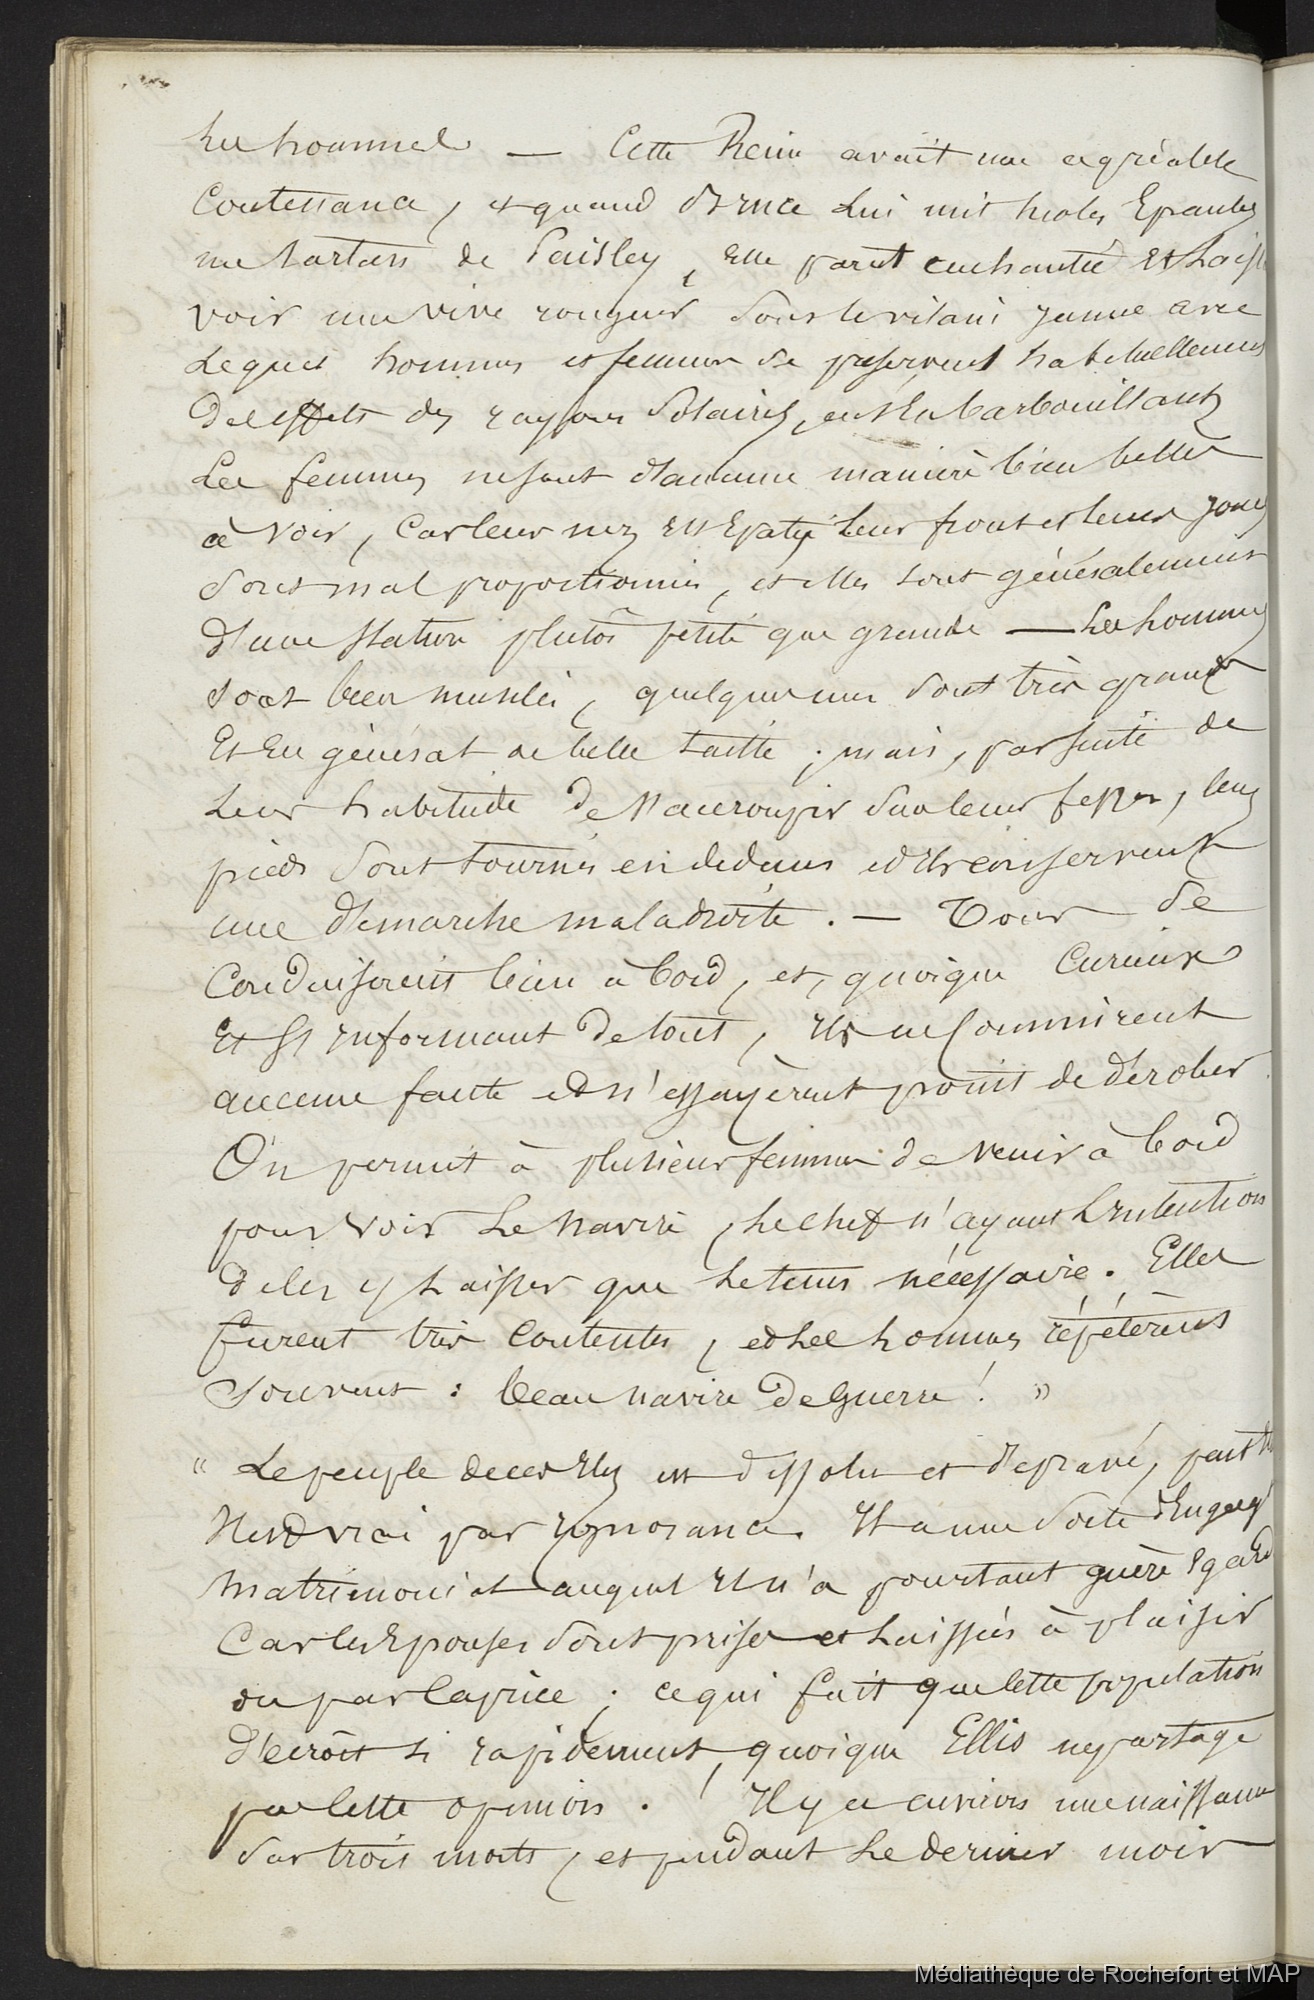 les hommes — Cette Reine avait une agréable
Contenance, et quand Bruce lui mit sur les Epaules
un tartan de Paisley, elle parut enchantée et laissa
voir une vive rougeur sous le vilain jaune avec
lequel hommes et femmes se préservent habituellement
des effets des rayons solaires, en s'en barbouillant
Les femmes ne sont d'aucune manière bien belles
à voir, Car leur nez est Epaté leur front et leurs joues
sont mal proportionnés, et elles sont généralement
d'une stature plutôt petite que grande — Les hommes
sont bien musclés, quelques uns sont très grands
Et en général de belle taille ; mais, par suite de
leur habitude de s'accroupir sur leurs fesses, leurs
pieds sont tournés en dedans et ils conservent
une démarche maladroite. — Tous se
Conduisirent bien à bord, et, quoique Curieux
Et s'informant de tout, ils ne commirent
aucune faute et n'essayèrent point de dérober
On permit à plusieurs femmes de venir à bord
pour voir le navire, le chef n'ayant l'intention
de les y laisser que le tems nécessaire. Elles
furent très contentes, et les hommes répétèrent
souvent : beau navire de guerre ! »
« Le peuple de ces Iles est dissolu et dépravé,
Il est vrai par ignorance. Il a une sorte d'Engagt
matrimonial auquel il n'a pourtant guère Egard
Car les Epouses sont prises et laissées à plaisir
ou par Caprice ; ce qui fait que cette population
décroît si rapidement, quoique Ellis ne partage
pas cette opinion. Il y a environ une naissance
sur trois morts, et pendant le dernier mois
Médiathèque de Rochefort et MAP